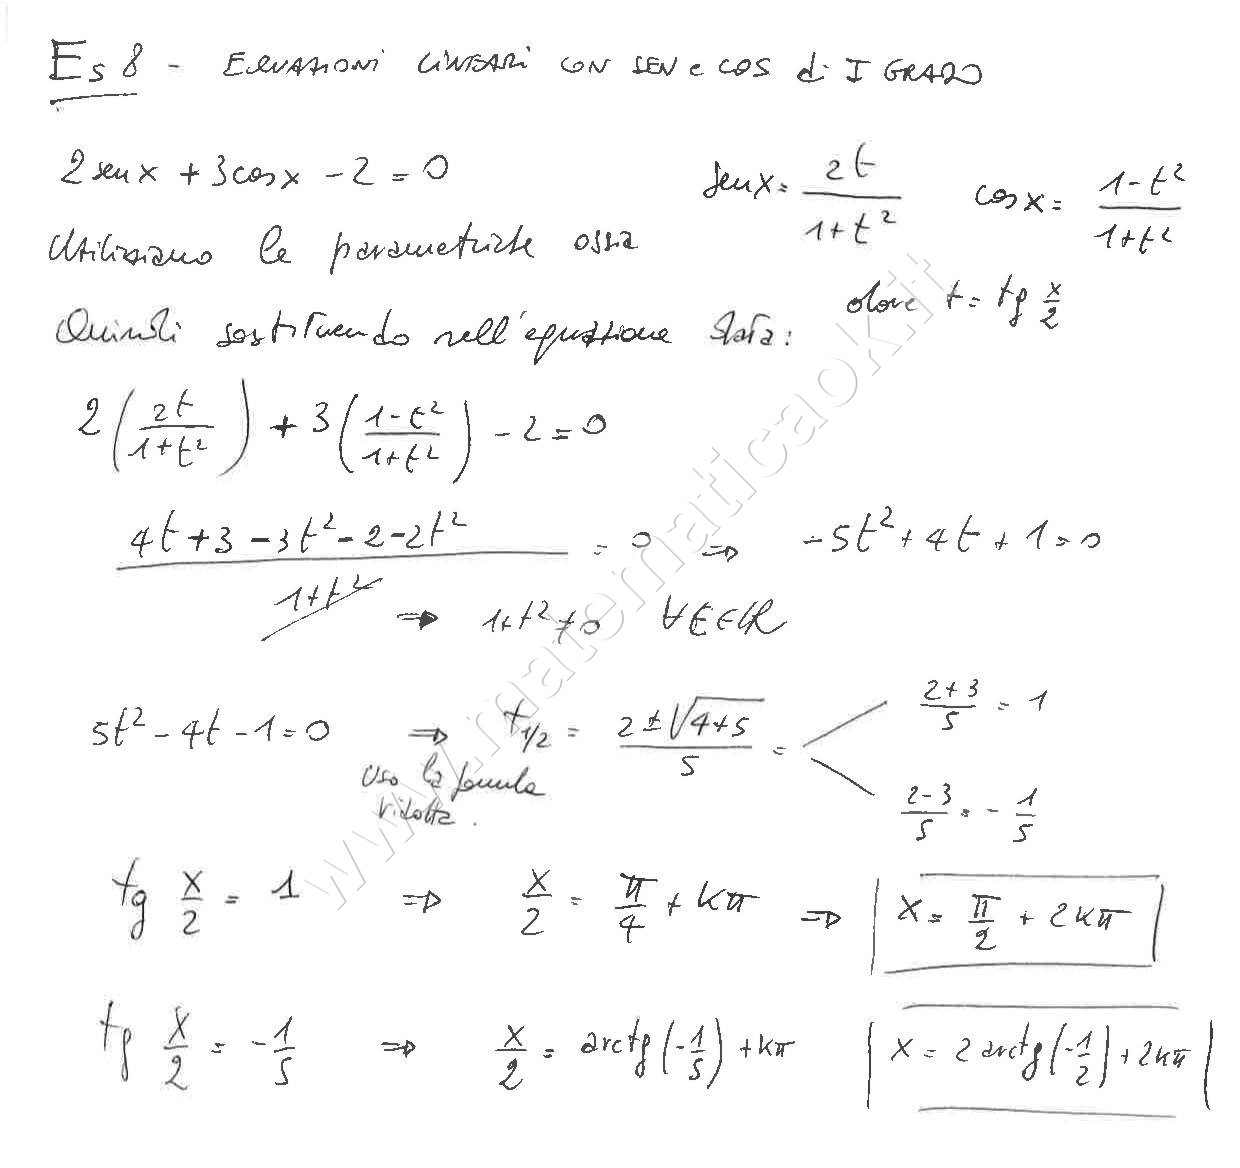 Es 8 - EQUAZIONI LINEARI CON SEN e COS di I GRADO
2senx + 3cosx - 2 = 0
senx = 2t/(1+t²) cosx = (1-t²)/(1+t²)
Utilizziamo le parametriche ossia
dove t = tg x/2
Quindi sostituendo nell'equazione data:
2(2t/(1+t²)) + 3((1-t²)/(1+t²)) - 2 = 0
(4t+3-3t²-2-2t²)/(1+t²) = 0 ⇒ -5t² + 4t + 1 = 0
⇒ 1+t² ≠ 0 ∀t∈ℝ
5t² - 4t - 1 = 0 ⇒ t1/2 = (2 ± √(4+5))/5 = (2+3)/5 = 1
(2-3)/5 = -1/5
Uso la formula
ridotta.
tg x/2 = 1 ⇒ x/2 = π/4 + kπ ⇒ x = π/2 + 2kπ
tg x/2 = -1/5 ⇒ x/2 = arctg(-1/5) + kπ x = 2 arctg(-1/2) + 2kπ
www.matematicaok.it